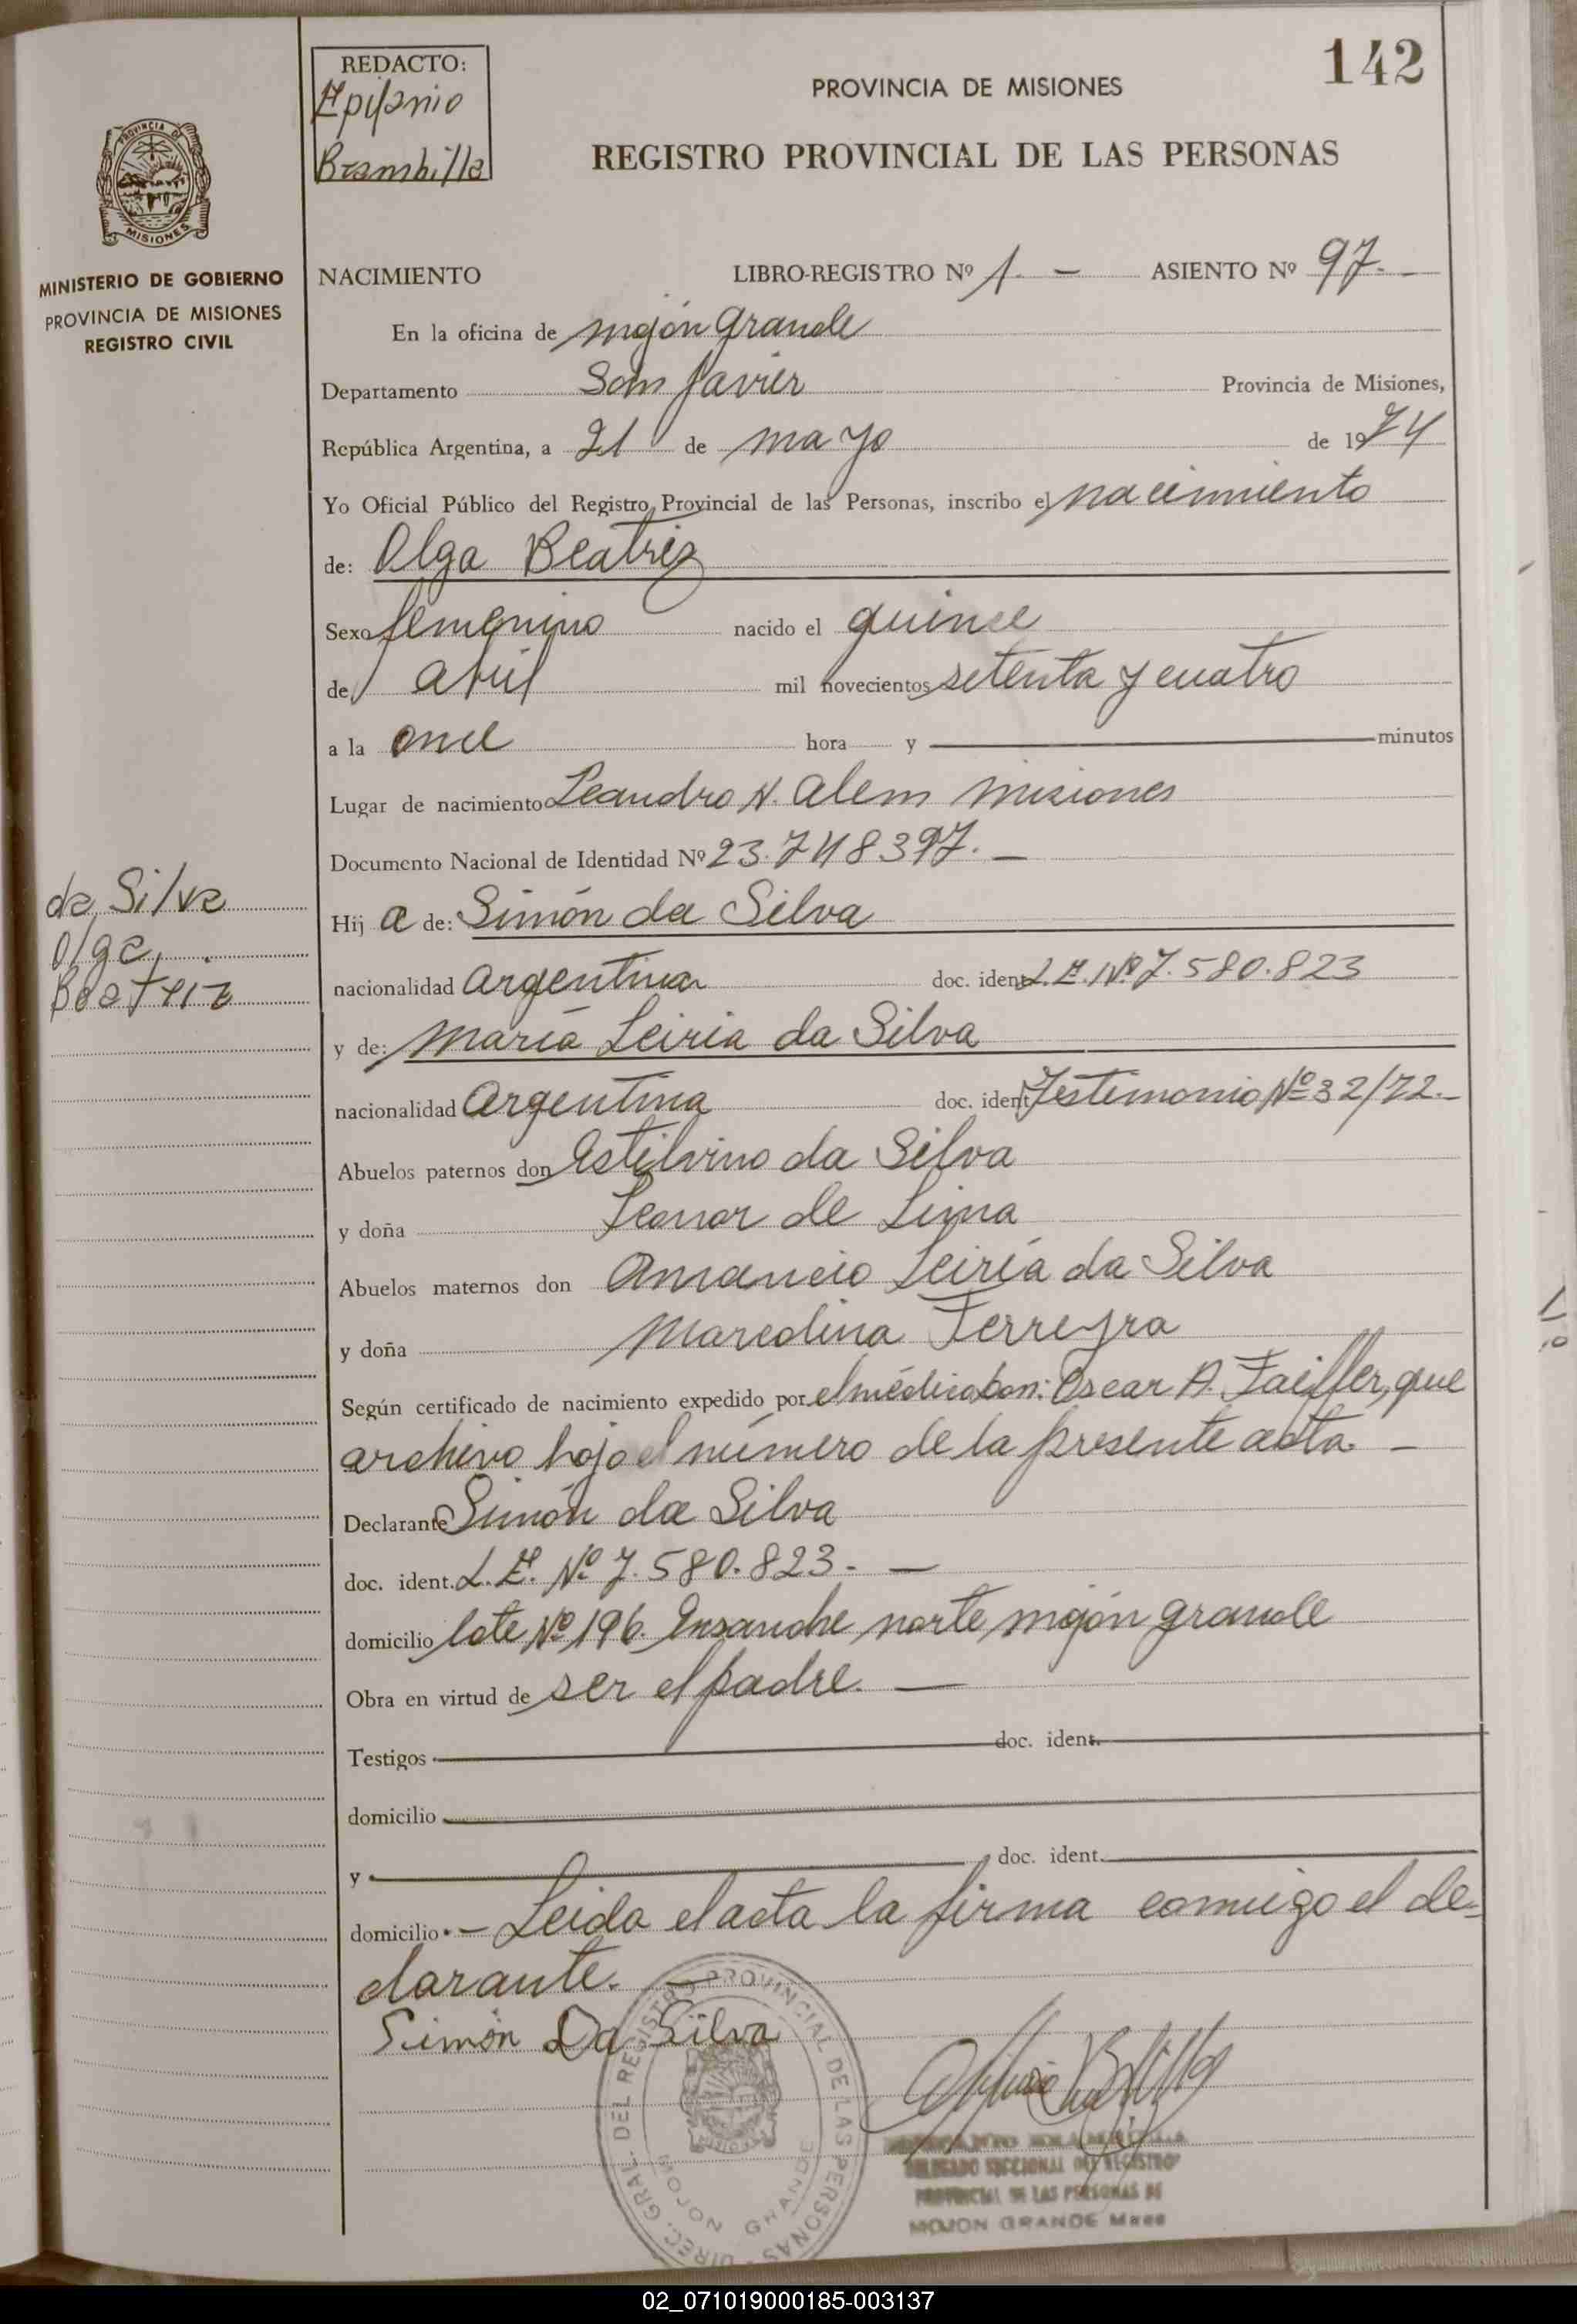 142
REDACTO:
Epifanio
Brambilla
PROVINCIA DE MISIONES
REGISTRO PROVINCIAL DE LAS PERSONAS
PROVINCIA DE
MISIONES
MINISTERIO DE GOBIERNO
PROVINCIA DE MISIONES
REGISTRO CIVIL
NACIMIENTO LIBRO-REGISTRO Nº 1. — ASIENTO Nº 97. —
En la oficina de mojón grande
Departamento San Javier Provincia de Misiones,
República Argentina, a 21 de mayo de 1974
Yo Oficial Público del Registro Provincial de las Personas, inscribo el nacimiento
de: Olga Beatriz
Sexo femenino nacido el quince
de abril mil novecientos setenta y cuatro
a la once hora y — minutos
Lugar de nacimiento Leandro N. Alem Misiones
Documento Nacional de Identidad Nº 23.748397. —
da Silva
Olga,
Beatriz
Hij a de: Simón da Silva
nacionalidad argentina doc. ident. L.E. Nº 7.580.823
y de: María Leiria da Silva
nacionalidad argentina doc. ident. Testimonio Nº 32/72.-
Abuelos paternos don Estilvino da Silva
y doña Leonor de Lima
Abuelos maternos don Amancio Leiría da Silva
y doña Marcolina Ferreyra
Según certificado de nacimiento expedido por el médico don: Oscar A. Faiffer, que
archivo bajo el número de la presente acta. —
Declarante Simón da Silva
doc. ident. L.E. Nº 7.580.823. —
domicilio lote Nº 196. Ensanche norte, mojón grande
Obra en virtud de ser el padre. —
Testigos doc. ident.
domicilio
y doc. ident.
domicilio. — Leida el acta la firma conmigo el de-
clarante. —
Simón Da Silva
DIREC. GRAL. DEL REGISTRO PROVINCIAL DE LAS PERSONAS
MOJON GRANDE
DELEGADO SECCIONAL DEL REGISTRO
PROVINCIAL DE LAS PERSONAS DE
MOJON GRANDE Mnes
02_071019000185-003137